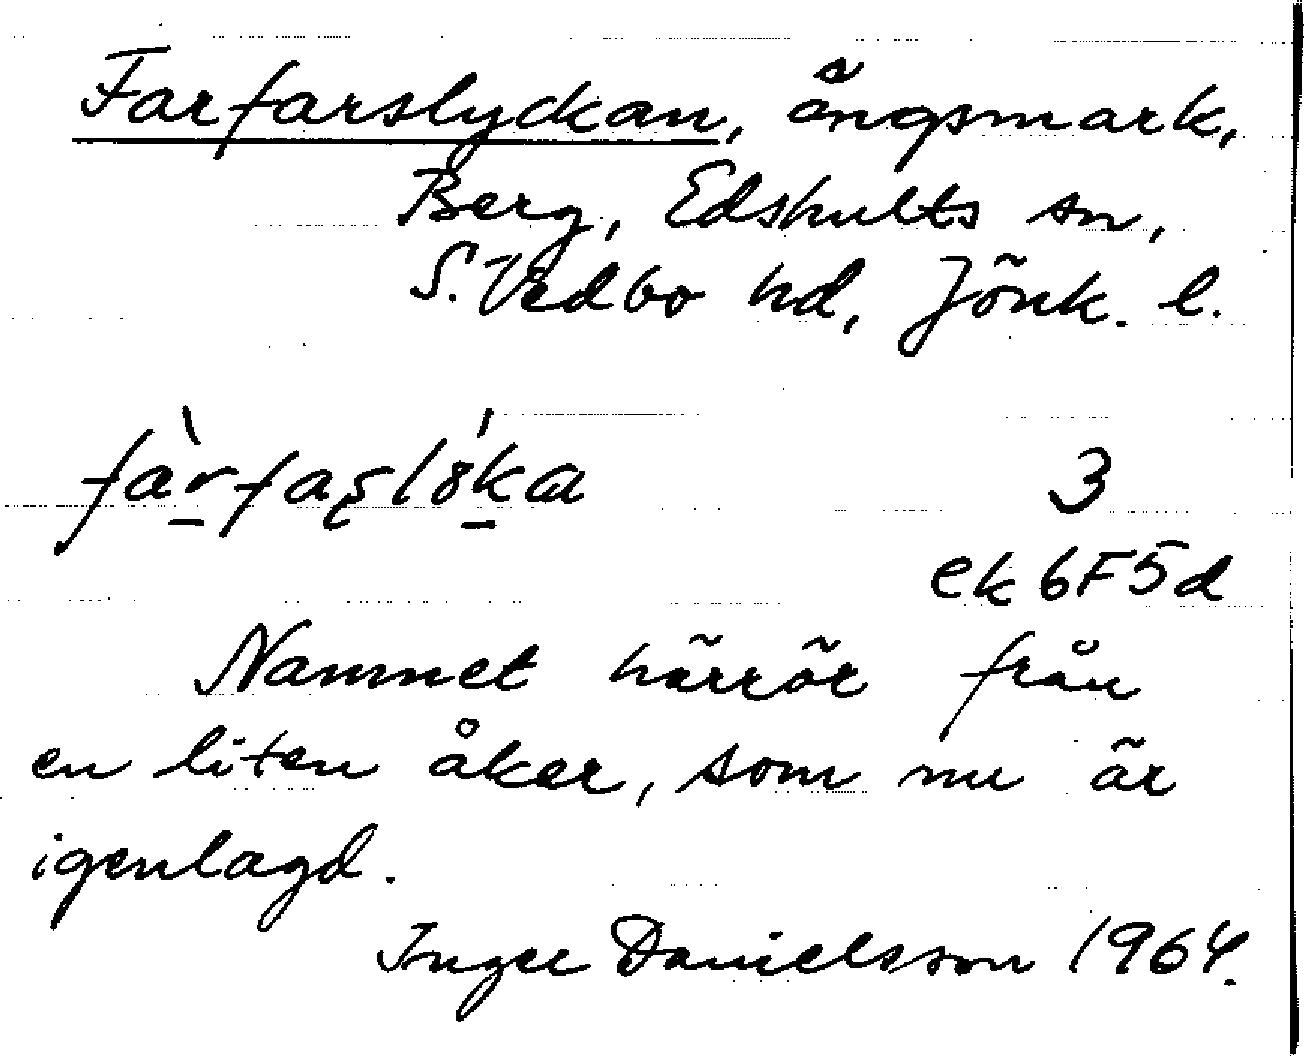 Farfarslyckan, ängsmark,
Berg, Edshults sn,
S. Vedbo hd, Jönk. l.
3
ek 6F5d
Namnet härrör från
en liten åker, som nu är
igenlagd.
Inger Danielsson 1964.